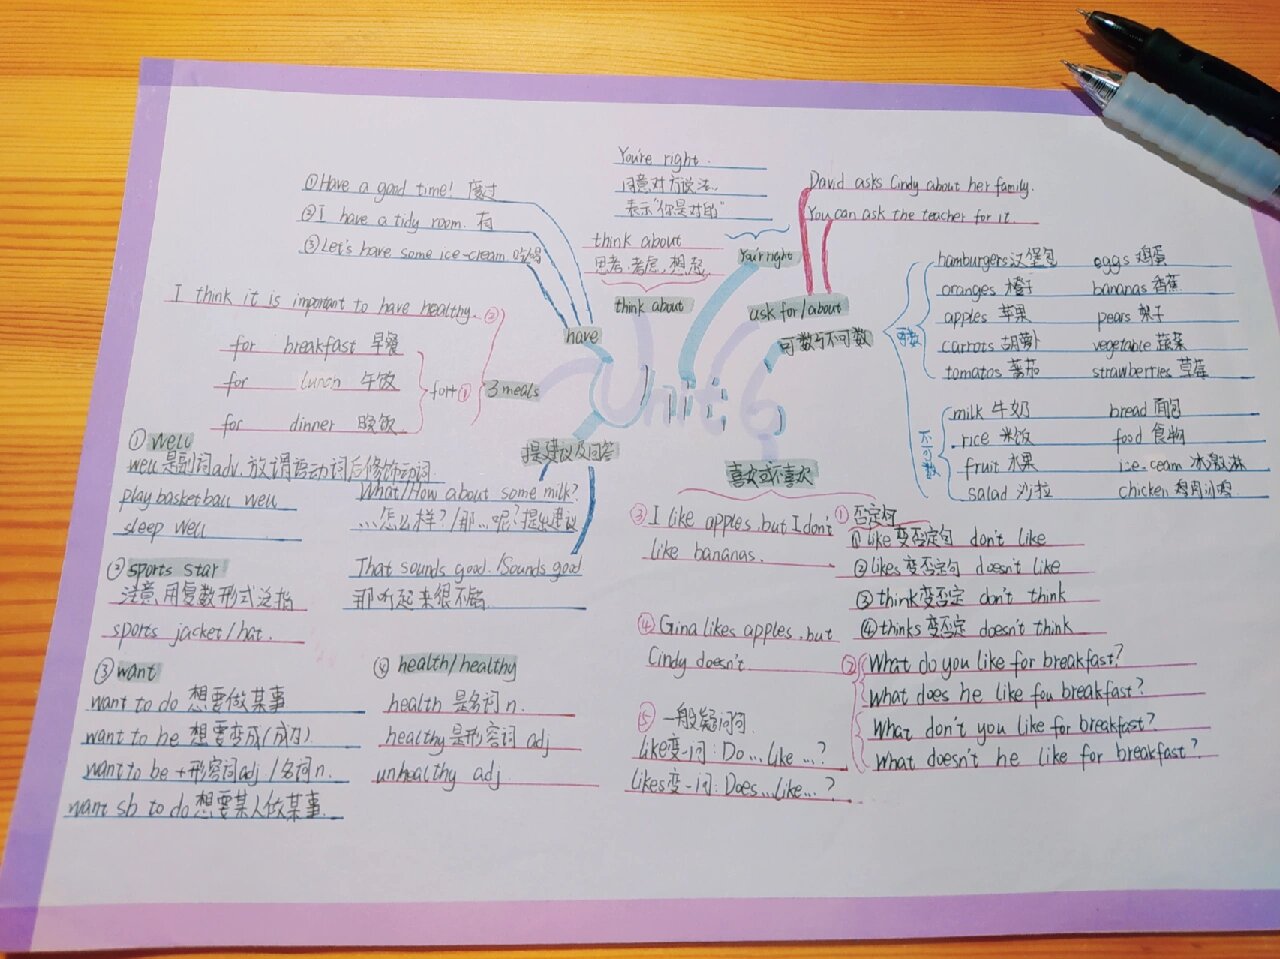 You're right.
同意对方说法,
表示"你是对的"
You're right
David asks Cindy about her family.
You can ask the teacher for it
ask for/about
①Have a good time! 度过
②I have a tidy room. 有
③Let's have some ice-cream 吃喝
have
think about
思考,考虑,想起,
think about
I think it is important to have healthy. ②
for breakfast 早餐
for lunch 午饭
for dinner 晚饭
for+ ①
3 meals
Unit 6
可数与不可数
可数
hamburgers 汉堡包 eggs 鸡蛋
oranges 橙子 bananas 香蕉
apples 苹果 pears 梨子
carrots 胡萝卜 vegetable 蔬菜
tomatos 蕃茄 strawberries 草莓
不可数
milk 牛奶 bread 面包
rice 米饭 food 食物
fruit 水果 ice-cream 冰激淋
salad 沙拉 chicken 鸡肉
提建议及回答
What/How about some milk?
……怎么样?/那…呢?提出建议
That sounds good./Sounds good
那听起来很不错.
① well
well 是副词adv. 放谓语动词后修饰动词.
play basketball well
sleep well
② sports star
注意,用复数形式泛指
sports jacket/hat.
③ want
want to do 想要做某事
want to be 想要变成(成为)
want to be +形容词adj /名词n.
want sb to do 想要某人做某事.
④ health/healthy
health 是名词 n.
healthy 是形容词 adj
unhealthy adj.
喜欢或不喜欢
① 否定句
①like 变否定句 don't like
②likes 变否定句 doesn't like
③think 变否定 don't think
④thinks 变否定 doesn't think
② What do you like for breakfast?
What does he like for breakfast?
What don't you like for breakfast?
What doesn't he like for breakfast?
③ I like apples, but I don't
like bananas.
④ Gina likes apples, but
Cindy doesn't
⑤ 一般疑问句
like变-问: Do...like...?
likes变-问: Does...like...?